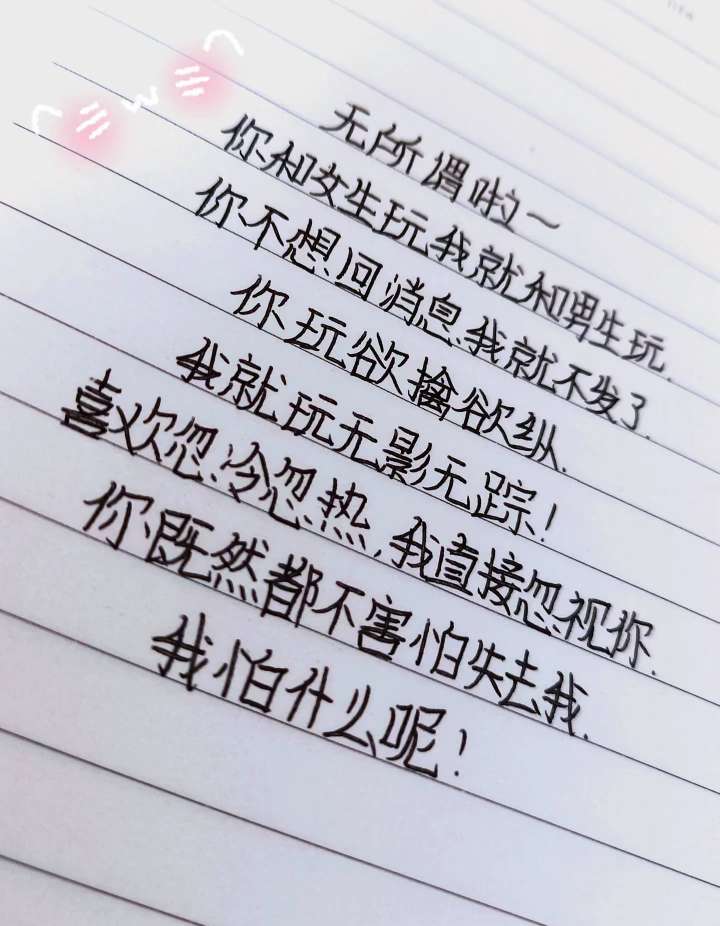 无所谓啦~
你和女生玩,我就和男生玩.
你不想回消息,我就不发了.
你玩欲擒欲纵.
我就玩无影无踪!
喜欢忽冷忽热,我直接忽视你.
你既然都不害怕失去我.
我怕什么呢!